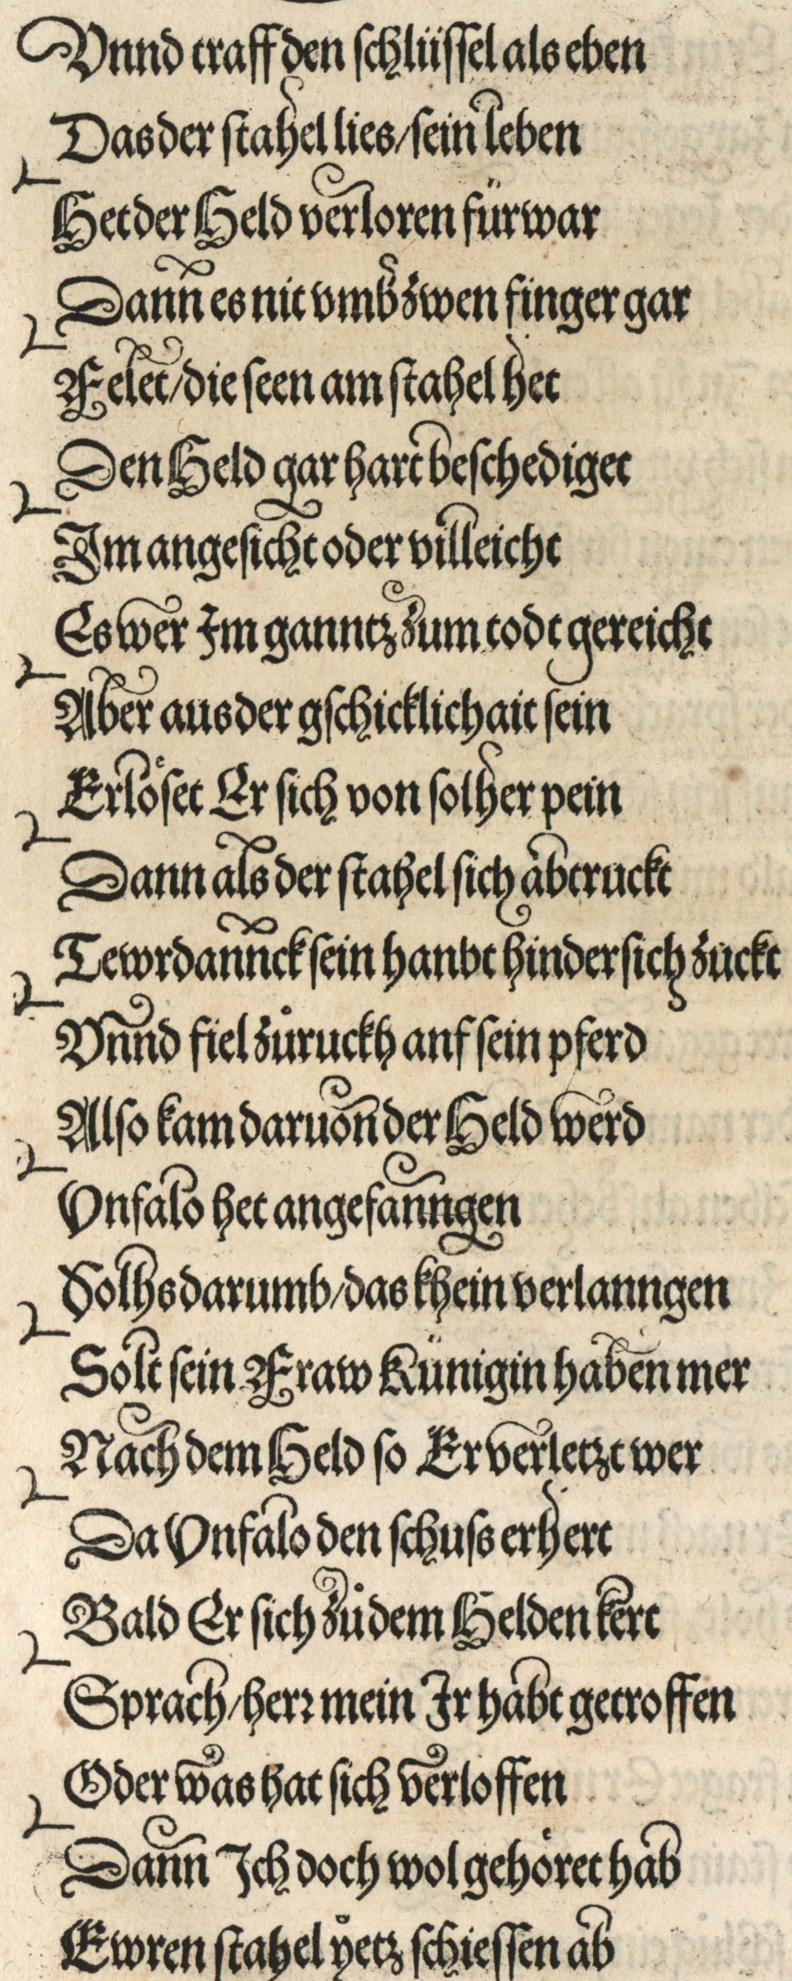 Vnnd traff den schlüssel als eben
Das der stahel lies/sein leben
Het der Held verloren fürwar
Dann es nit vmb zwen finger gar
Felet/die seen am stahel het
Den Held gar hart beschediget
Im angesicht oder villeicht
Es wer Im ganntz zum todt gereicht
Aber aus der gschicklichait sein
Erlöset Er sich von solher pein
Dann als der stahel sich abtruckt
Tewrdannck sein haubt hindersich zuckt
Vnnd fiel zůruckh auf sein pferd
Also kam daruon der Held werd
Vnfalo het angefanngen
Solhs darumb/das khein verlanngen
Solt sein Fraw Künigin haben mer
Nach dem Held so Er verletzt wer
Da Vnfalo den schuss erhert
Bald Er sich zů dem Helden kert
Sprach/herr mein Ir habt getroffen
Oder was hat sich verloffen
Dann Ich doch wol gehöret hab
Ewren stahel yetz schiessen ab